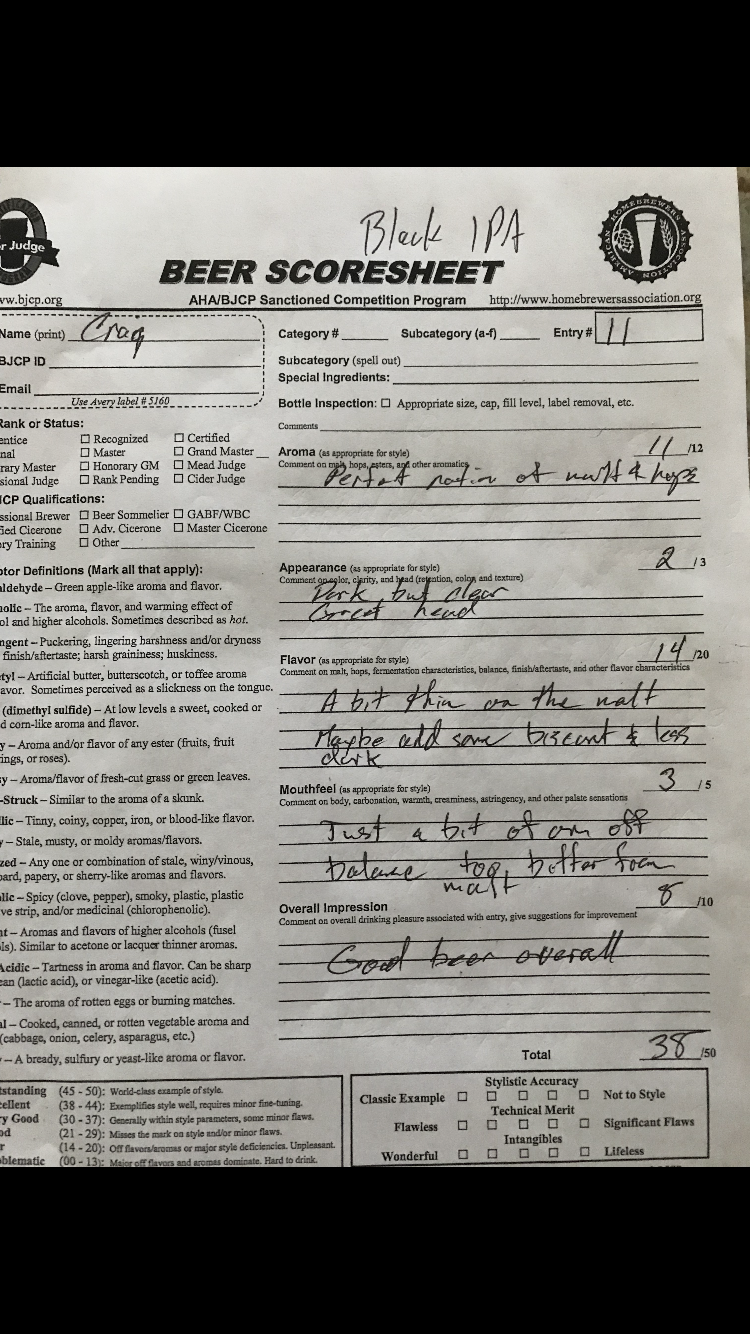 Black IPA
HOMEBREWERS ASSOCIATION
AMERICAN
r Judge
BEER SCORESHEET
ww.bjcp.org AHA/BJCP Sanctioned Competition Program http://www.homebrewersassociation.org
Name (print) Craig
Category # Subcategory (a-f) Entry # 11
BJCP ID
Subcategory (spell out)
Email
Special Ingredients:
Use Avery label # 5160
Bottle Inspection: ☐ Appropriate size, cap, fill level, label removal, etc.
Comments
Rank or Status:
entice ☐ Recognized ☐ Certified
nal ☐ Master ☐ Grand Master
rary Master ☐ Honorary GM ☐ Mead Judge
sional Judge ☐ Rank Pending ☐ Cider Judge
CP Qualifications:
ssional Brewer ☐ Beer Sommelier ☐ GABF/WBC
fied Cicerone ☐ Adv. Cicerone ☐ Master Cicerone
ry Training ☐ Other
ptor Definitions (Mark all that apply):
aldehyde – Green apple-like aroma and flavor.
holic – The aroma, flavor, and warming effect of
ol and higher alcohols. Sometimes described as hot.
ngent – Puckering, lingering harshness and/or dryness
finish/aftertaste; harsh graininess; huskiness.
tyl – Artificial butter, butterscotch, or toffee aroma
avor. Sometimes perceived as a slickness on the tongue.
(dimethyl sulfide) – At low levels a sweet, cooked or
d corn-like aroma and flavor.
y – Aroma and/or flavor of any ester (fruits, fruit
rings, or roses).
sy – Aroma/flavor of fresh-cut grass or green leaves.
-Struck – Similar to the aroma of a skunk.
llic – Tinny, coiny, copper, iron, or blood-like flavor.
y – Stale, musty, or moldy aromas/flavors.
zed – Any one or combination of stale, winy/vinous,
oard, papery, or sherry-like aromas and flavors.
lic – Spicy (clove, pepper), smoky, plastic, plastic
ve strip, and/or medicinal (chlorophenolic).
nt – Aromas and flavors of higher alcohols (fusel
ls). Similar to acetone or lacquer thinner aromas.
Acidic – Tartness in aroma and flavor. Can be sharp
ean (lactic acid), or vinegar-like (acetic acid).
– The aroma of rotten eggs or burning matches.
al – Cooked, canned, or rotten vegetable aroma and
(cabbage, onion, celery, asparagus, etc.)
– A bready, sulfury or yeast-like aroma or flavor.
Aroma (as appropriate for style) 11 /12
Comment on malt, hops, esters, and other aromatics
of malt & hops
Appearance (as appropriate for style) 2 /3
Comment on color, clarity, and head (retention, color, and texture)
Dark, but clear
Great head
Flavor (as appropriate for style) 14 /20
Comment on malt, hops, fermentation characteristics, balance, finish/aftertaste, and other flavor characteristics
A bit thin on the malt
Maybe add some biscuit & less
dark
Mouthfeel (as appropriate for style) 3 /5
Comment on body, carbonation, warmth, creaminess, astringency, and other palate sensations
Just a bit of an off
balance too, bitter from
malt
Overall Impression 8 /10
Comment on overall drinking pleasure associated with entry, give suggestions for improvement
Good beer overall
Total 38 /50
tstanding (45 - 50): World-class example of style.
cellent (38 - 44): Exemplifies style well, requires minor fine-tuning.
ry Good (30 - 37): Generally within style parameters, some minor flaws.
od (21 - 29): Misses the mark on style and/or minor flaws.
r (14 - 20): Off flavors/aromas or major style deficiencies. Unpleasant.
blematic (00 - 13): Major off flavors and aromas dominate. Hard to drink.
Stylistic Accuracy
Classic Example ☐ ☐ ☐ ☐ ☐ Not to Style
Technical Merit
Flawless ☐ ☐ ☐ ☐ ☐ Significant Flaws
Intangibles
Wonderful ☐ ☐ ☐ ☐ ☐ Lifeless